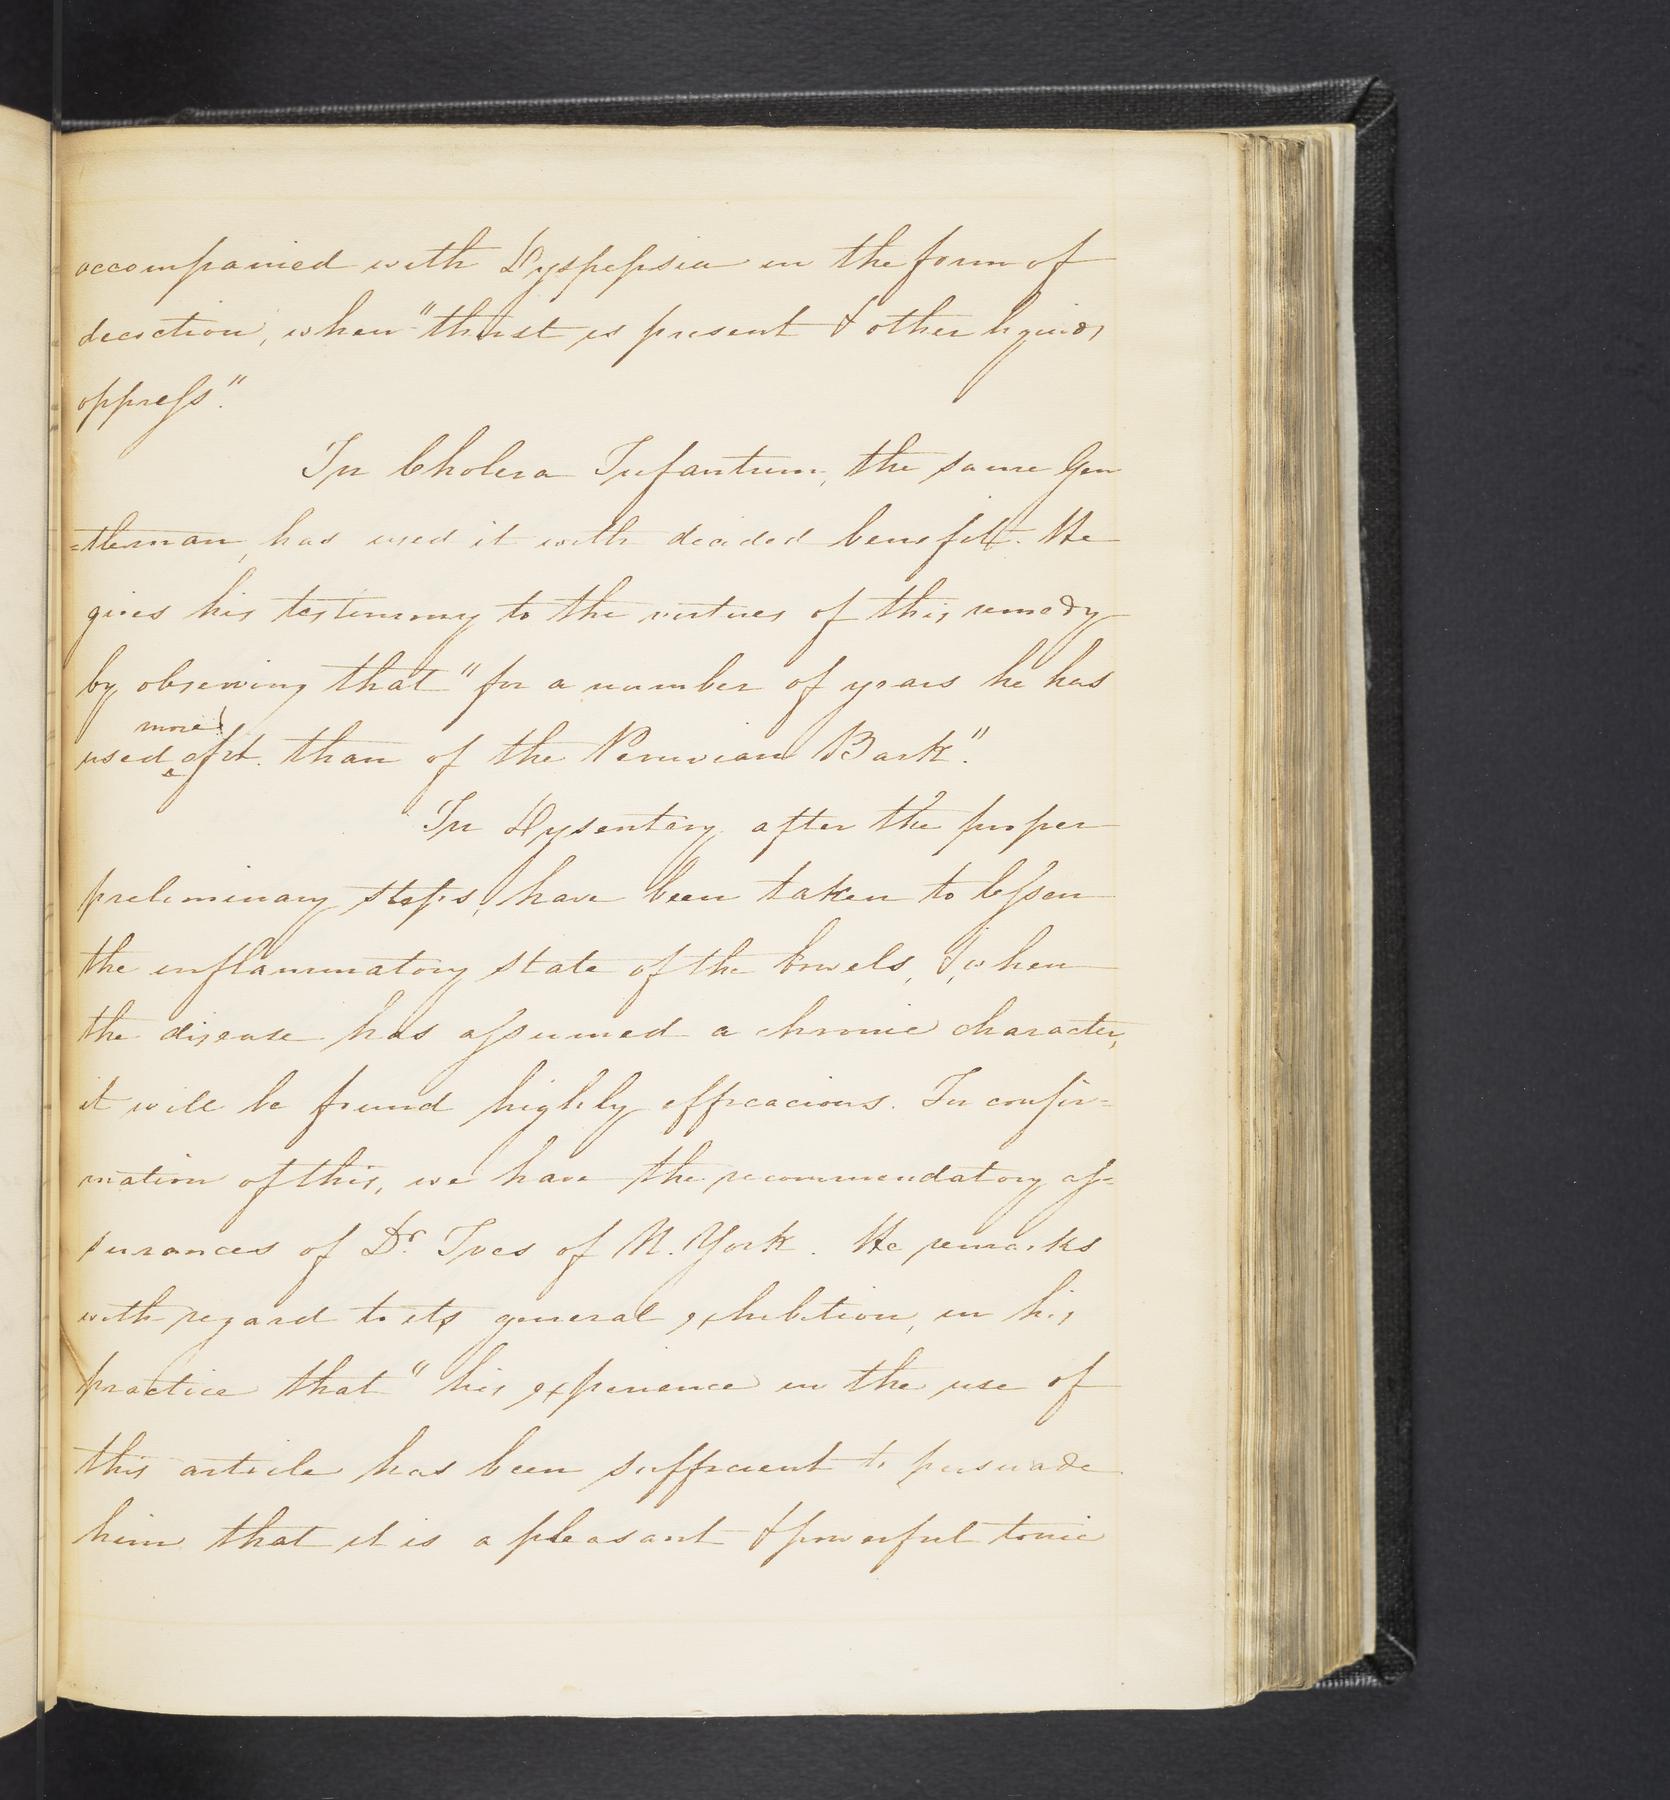 accompanied with Dyspepsia in the form of
decoction, when "thirst is present & other liquids
oppress".
In Cholera Infantum, the same Gen
=tleman, has used it with decided benefit. He
gives his testimony to the virtues of this remedy
by observing that "for a number of years he has
more
used ‸ of it. than of the Peruvian Bark".
In Dysentery after the proper
preliminary steps, have been taken to lessen
the inflammatory state of the bowels, &, when
the disease has assumed a chronic character,
it will be found highly efficacious. In confir=
mation of this, we have the recommendatory as=
surances of Dr. Ives of N. York. He remarks
with regard to its general exhibition, in his
practice that "his experience in the use of
this article has been sufficient to persuade
him that it is a pleasant & powerful tonic